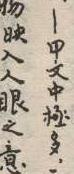 ｜甲文中極多．
物映入人眼之意